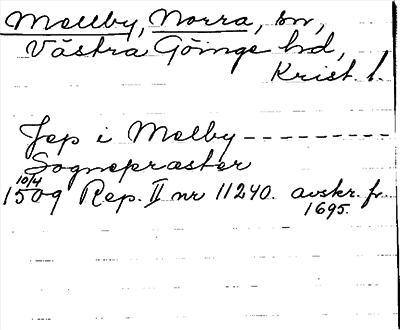 Mellby, Norra, sn,
Västra Göinge hd,
Krist. l.
Jep i Melby ---------
Sognepræster
10/4
1509 Rep. II nr 11240. avskr. fr.
1695.